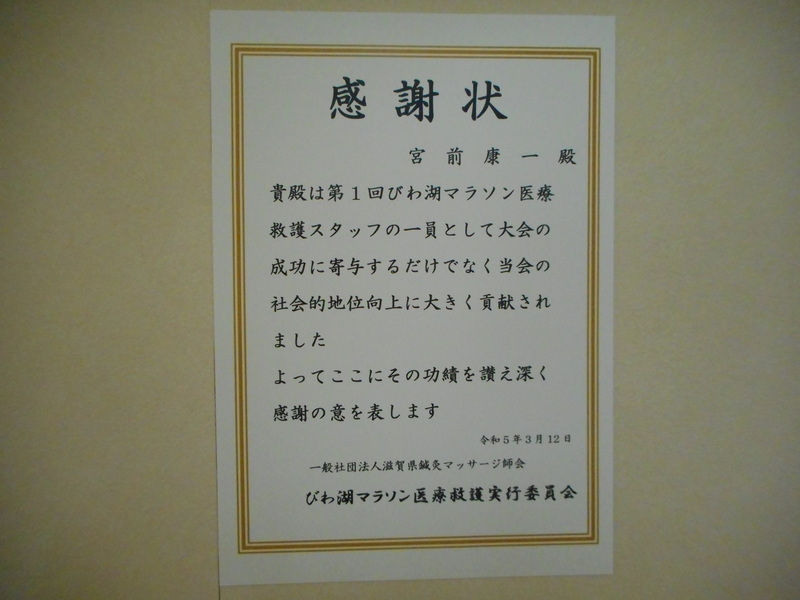 感謝状
宮前康一殿
貴殿は第1回びわ湖マラソン医療
救護スタッフの一員として大会の
成功に寄与するだけでなく当会の
社会的地位向上に大きく貢献され
ました
よってここにその功績を讃え深く
感謝の意を表します
令和5年3月12日
一般社団法人滋賀県鍼灸マッサージ師会
びわ湖マラソン医療救護実行委員会